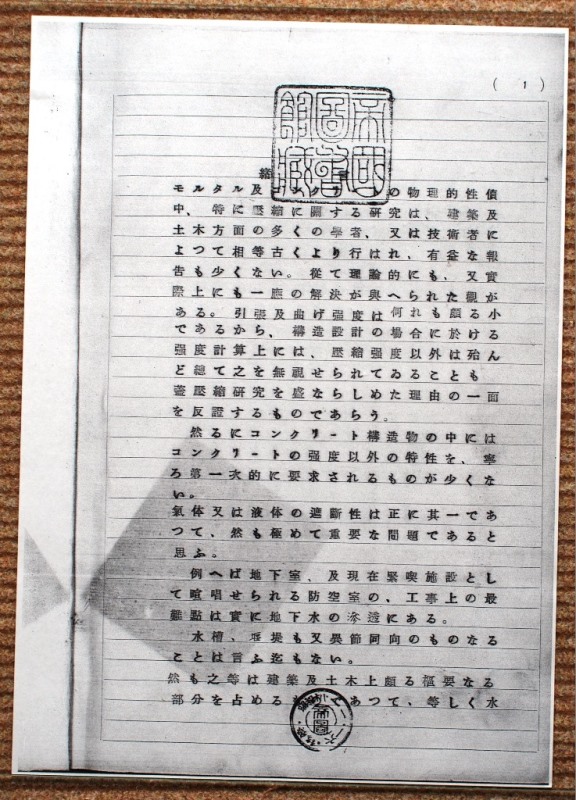 ( 1 )
緒
モルタル及コンクリートの物理的性質
中、特に壓縮に關する研究は、建築及
土木方面の多くの學者、又は技術者に
よつて相等古くより行はれ、有益な報
告も少くない。從て理論的にも、又實
際上にも一應の解決が與へられた觀が
ある。引張及曲げ强度は何れも頗る小
であるから、構造設計の場合に於ける
强度計算上には、壓縮强度以外は殆ん
ど總て之を無視せられてゐることも
壓縮研究を盛ならしめた理由の一面
を反證するものであらう。
然るにコンクリート構造物の中には
コンクリートの强度以外の特性を、寧
ろ第一次的に要求されるものが少くな
い。
氣体又は液体の遮斷性は正に其一であ
つて、然も極めて重要な問題であると
思ふ。
例へば地下室、及現在緊喫施設とし
て喧唱せられる防空室の、工事上の最
難點は實に地下水の滲透にある。
水槽、堰堤も又異節同向のものなる
ことは言ふ迄もない。
然も之等は建築及土木上頗る重要なる
部分を占める あつて、等しく水